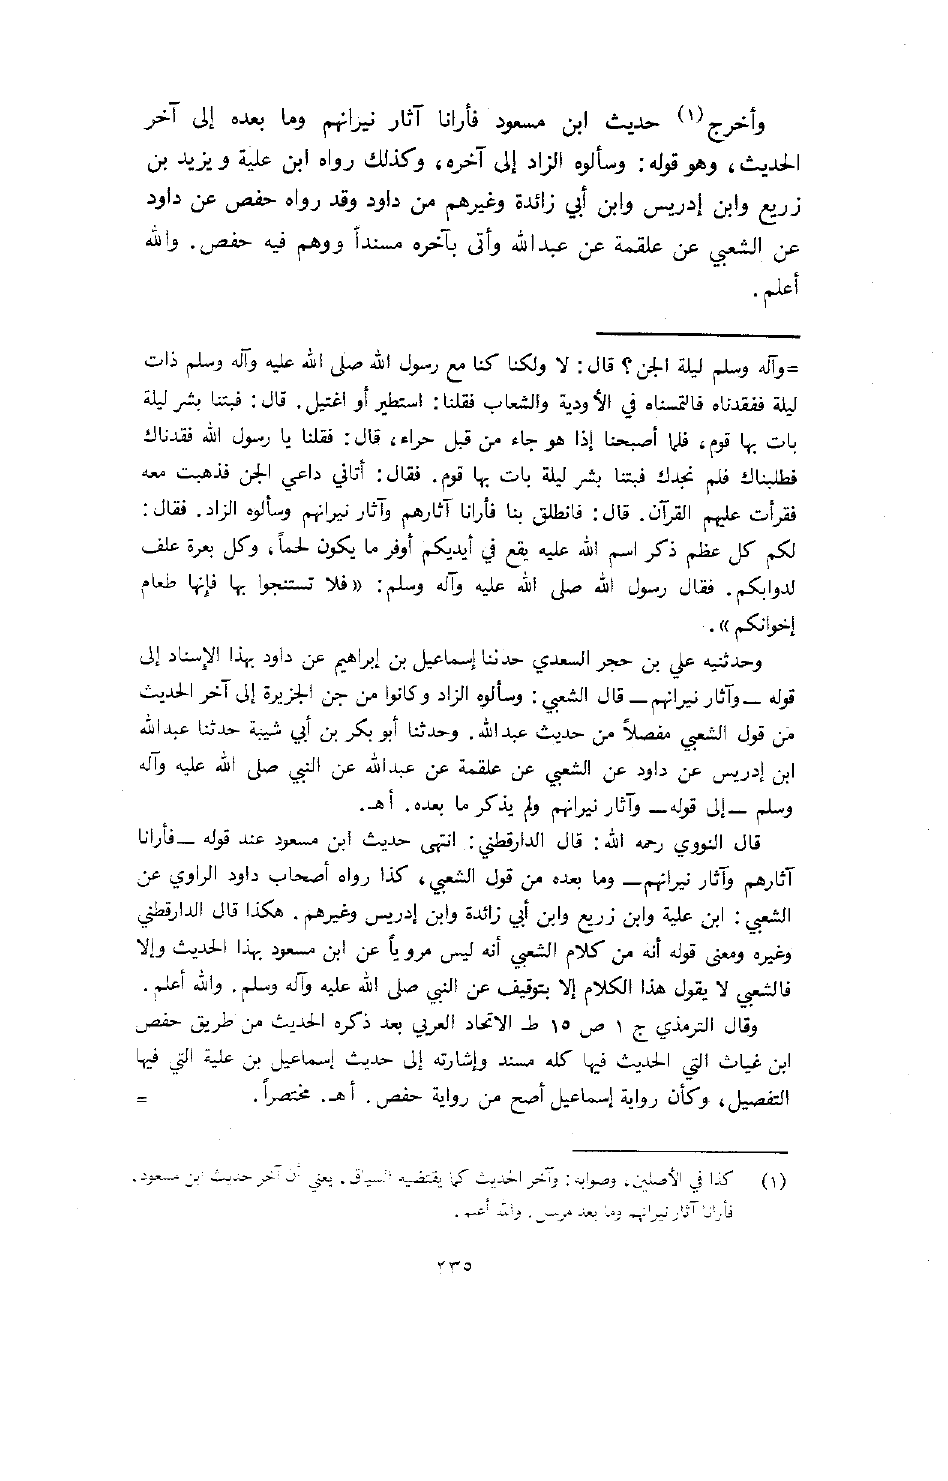 وأخرج(١) حديث ابن مسعود فأرانا آثار نيرانهم وما بعده إلى آخر
الحديث، وهو قوله: وسألوه الزاد إلى آخره، وكذلك رواه ابن علية ويزيد بن
زريع وابن إدريس وابن أبي زائدة وغيرهم من داود وقد رواه حفص عن داود
عن الشعبي عن علقمة عن عبدالله وأتى بآخره مسنداً ووهم فيه حفص. والله
أعلم.
=وآله وسلم ليلة الجن؟ قال: لا ولكنا كنا مع رسول الله صلى الله عليه وآله وسلم ذات
ليلة ففقدناه فالتمسناه في الأودية والشعاب فقلنا: استطير أو اغتيل. قال: فبتنا بشر ليلة
بات بها قوم، فلما أصبحنا إذا هو جاء من قبل حراء، قال: فقلنا يا رسول الله فقدناك
فطلبناك فلم نجدك فبتنا بشر ليلة بات بها قوم. فقال: أتاني داعي الجن فذهبت معه
فقرأت عليهم القرآن. قال: فانطلق بنا فأرانا آثارهم وآثار نيرانهم وسألوه الزاد. فقال:
لكم كل عظم ذكر اسم الله عليه يقع في أيديكم أوفر ما يكون لحماً، وكل بعرة علف
لدوابكم. فقال رسول الله صلى الله عليه وآله وسلم: «فلا تستنجوا بها فإنها طعام
إخوانكم».
وحدثنيه علي بن حجر السعدي حدثنا إسماعيل بن إبراهيم عن داود بهذا الإسناد إلى
قوله ــ وآثار نيرانهم ــ قال الشعبي: وسألوه الزاد وكانوا من جن الجزيرة إلى آخر الحديث
من قول الشعبي مفصلاً من حديث عبدالله. وحدثنا أبو بكر بن أبي شيبة حدثنا عبدالله
ابن إدريس عن داود عن الشعبي عن علقمة عن عبدالله عن النبي صلى الله عليه وآله
وسلم ــ إلى قوله ــ وآثار نيرانهم ولم يذكر ما بعده. أهـ.
قال النووي رحمه الله: قال الدارقطني: انتهى حديث ابن مسعود عند قوله ــ فأرانا
آثارهم وآثار نيرانهم ــ وما بعده من قول الشعبي، كذا رواه أصحاب داود الراوي عن
الشعبي: ابن علية وابن زريع وابن أبي زائدة وابن إدريس وغيرهم. هكذا قال الدارقطني
وغيره ومعنى قوله أنه من كلام الشعبي أنه ليس مروياً عن ابن مسعود بهذا الحديث وإلا
فالشعبي لا يقول هذا الكلام إلا بتوقيف عن النبي صلى الله عليه وآله وسلم. والله أعلم.
وقال الترمذي ج ١ ص ١٥ ط الاتحاد العربي بعد ذكره الحديث من طريق حفص
ابن غياث التي الحديث فيها كله مسند وإشارته إلى حديث إسماعيل بن علية التي فيها
التفصيل، وكأن رواية إسماعيل أصح من رواية حفص. أهـ. مختصراً. =
(١) كذا في الأصلين، وصوابه: وآخر الحديث كما يقتضيه السياق. يعني أن آخر حديث ابن مسعود.
فأرانا آثار نيرانهم وما بعد مرسل. والله أعلم.
٢٣٥